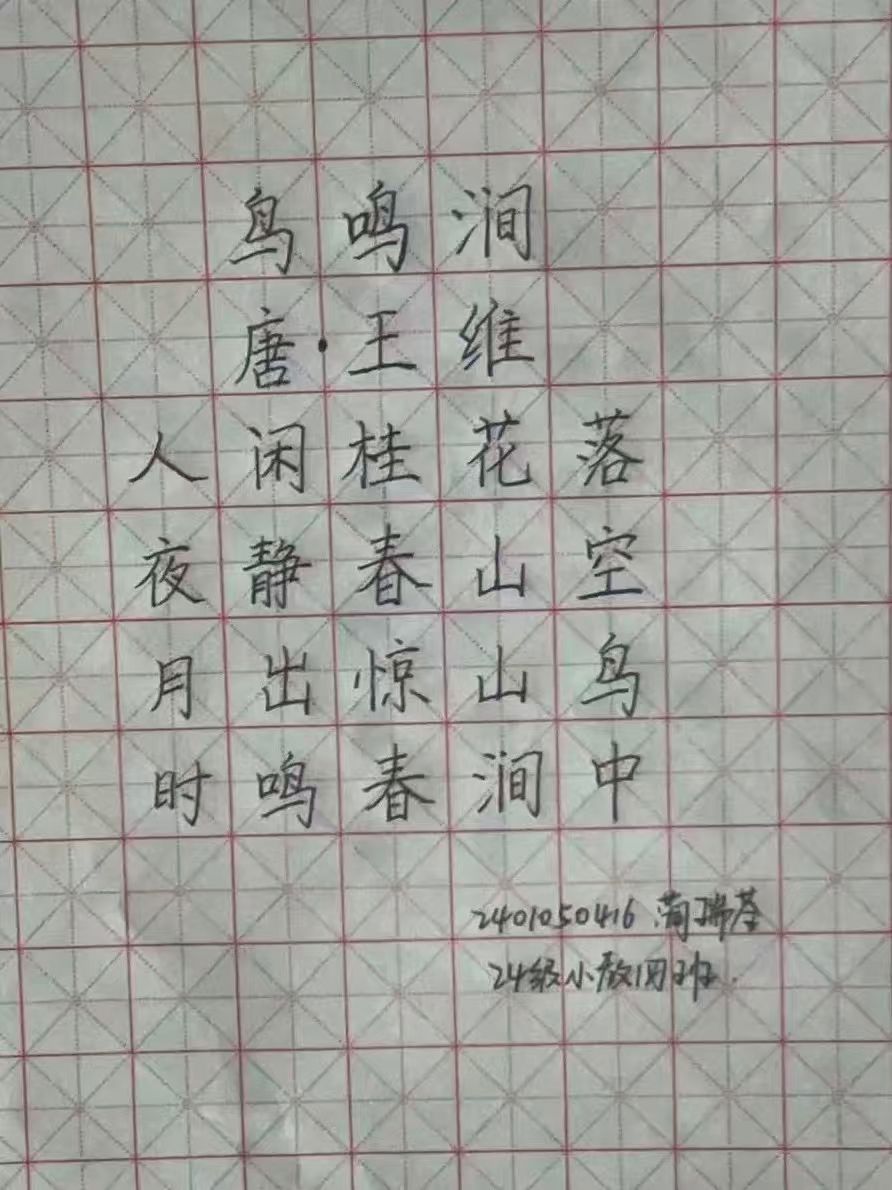 鸟鸣涧
唐·王维
人闲桂花落
夜静春山空
月出惊山鸟
时鸣春涧中
2401050416 蔺瑞荃
24级小教1班